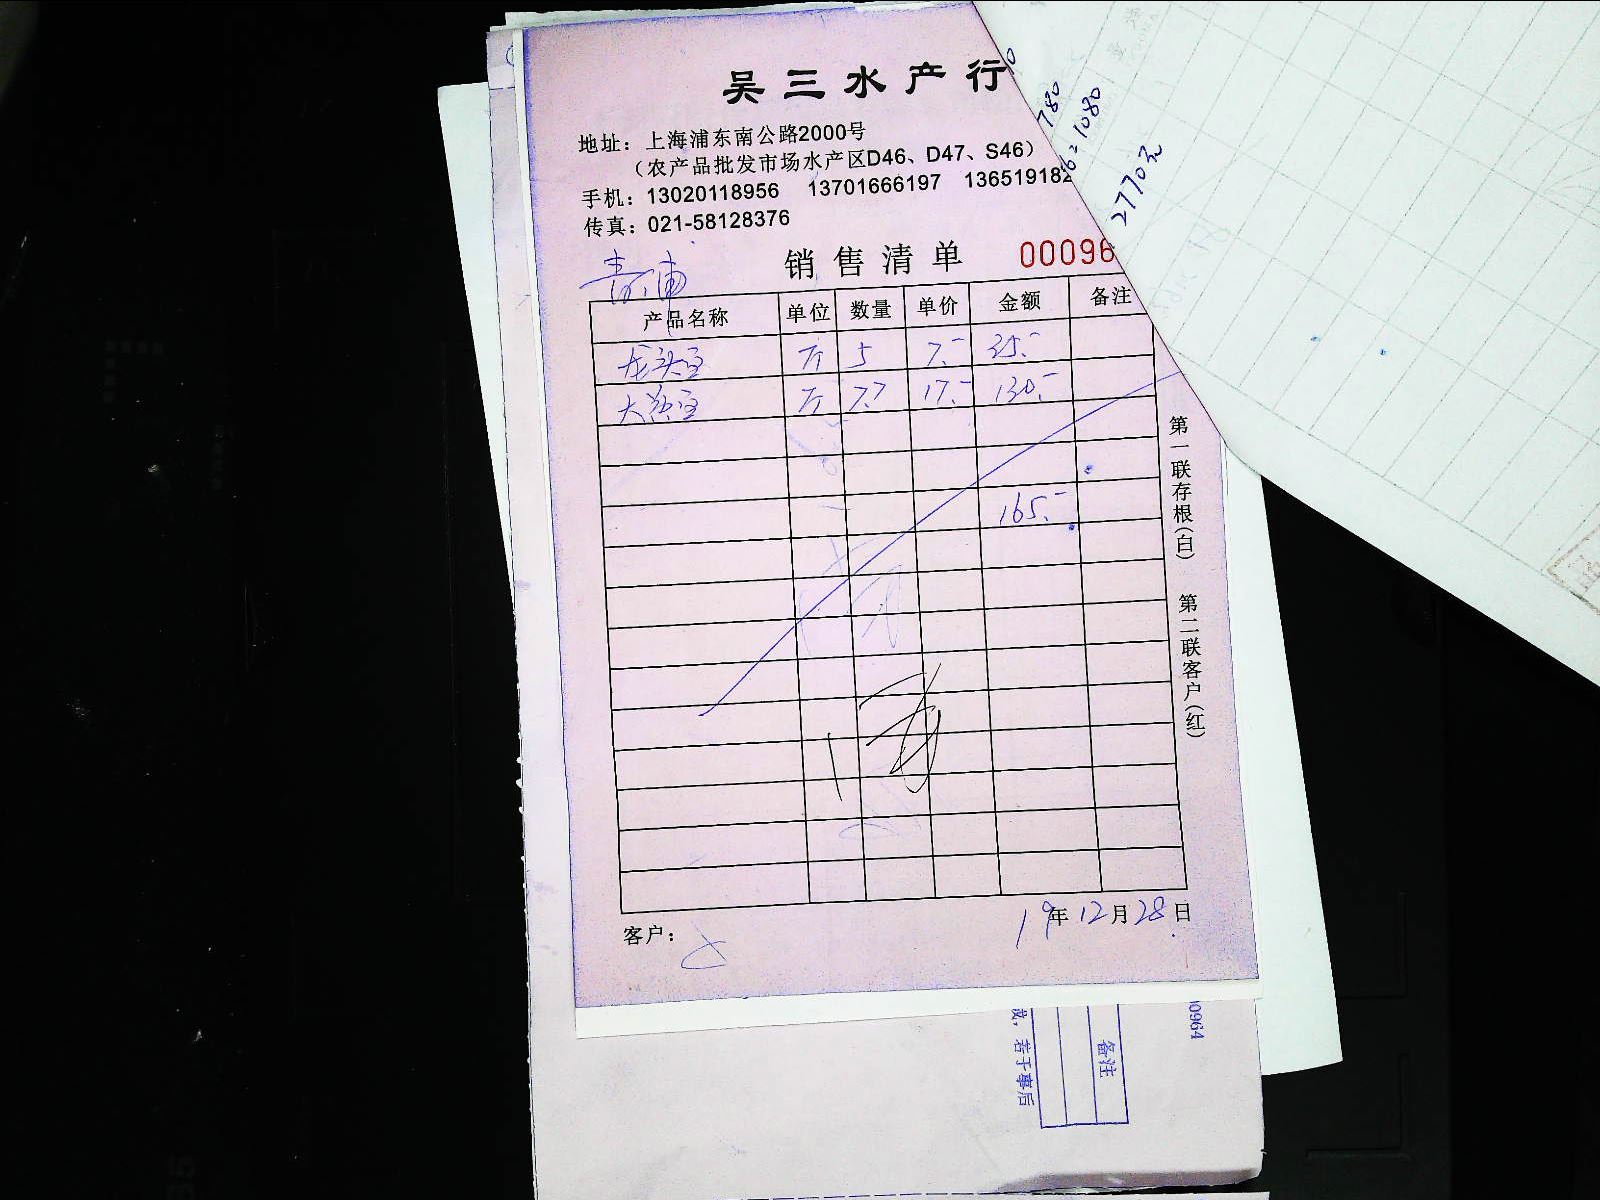 吴三水产行
地址：上海浦东南公路2000号
（农产品批发市场水产区D46、D47、S46）
手机：13020118956 13701666197 136519182
传真：021-58128376
销售清单 00096
青浦
产品名称 单位 数量 单价 金额 备注
龙头 斤 5 7.- 35.-
大 斤 7.7 17.- 130.-
165.-
第一联存根(白) 第二联客户(红)
19年12月28日
客户：
780
1080
2770元
00964
备注
若于事后